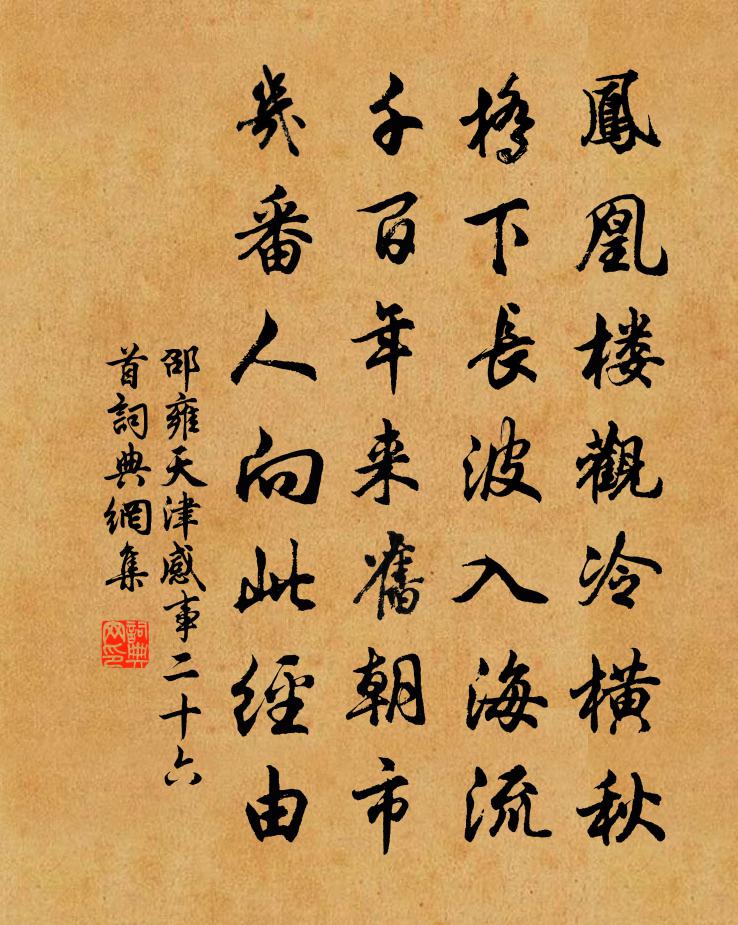 鳳凰楼觀冷橫秋
橋下長波入海流
千百年来舊朝市
幾番人向此經由
邵雍天津感事二十六
首詞典網集
詞典網印